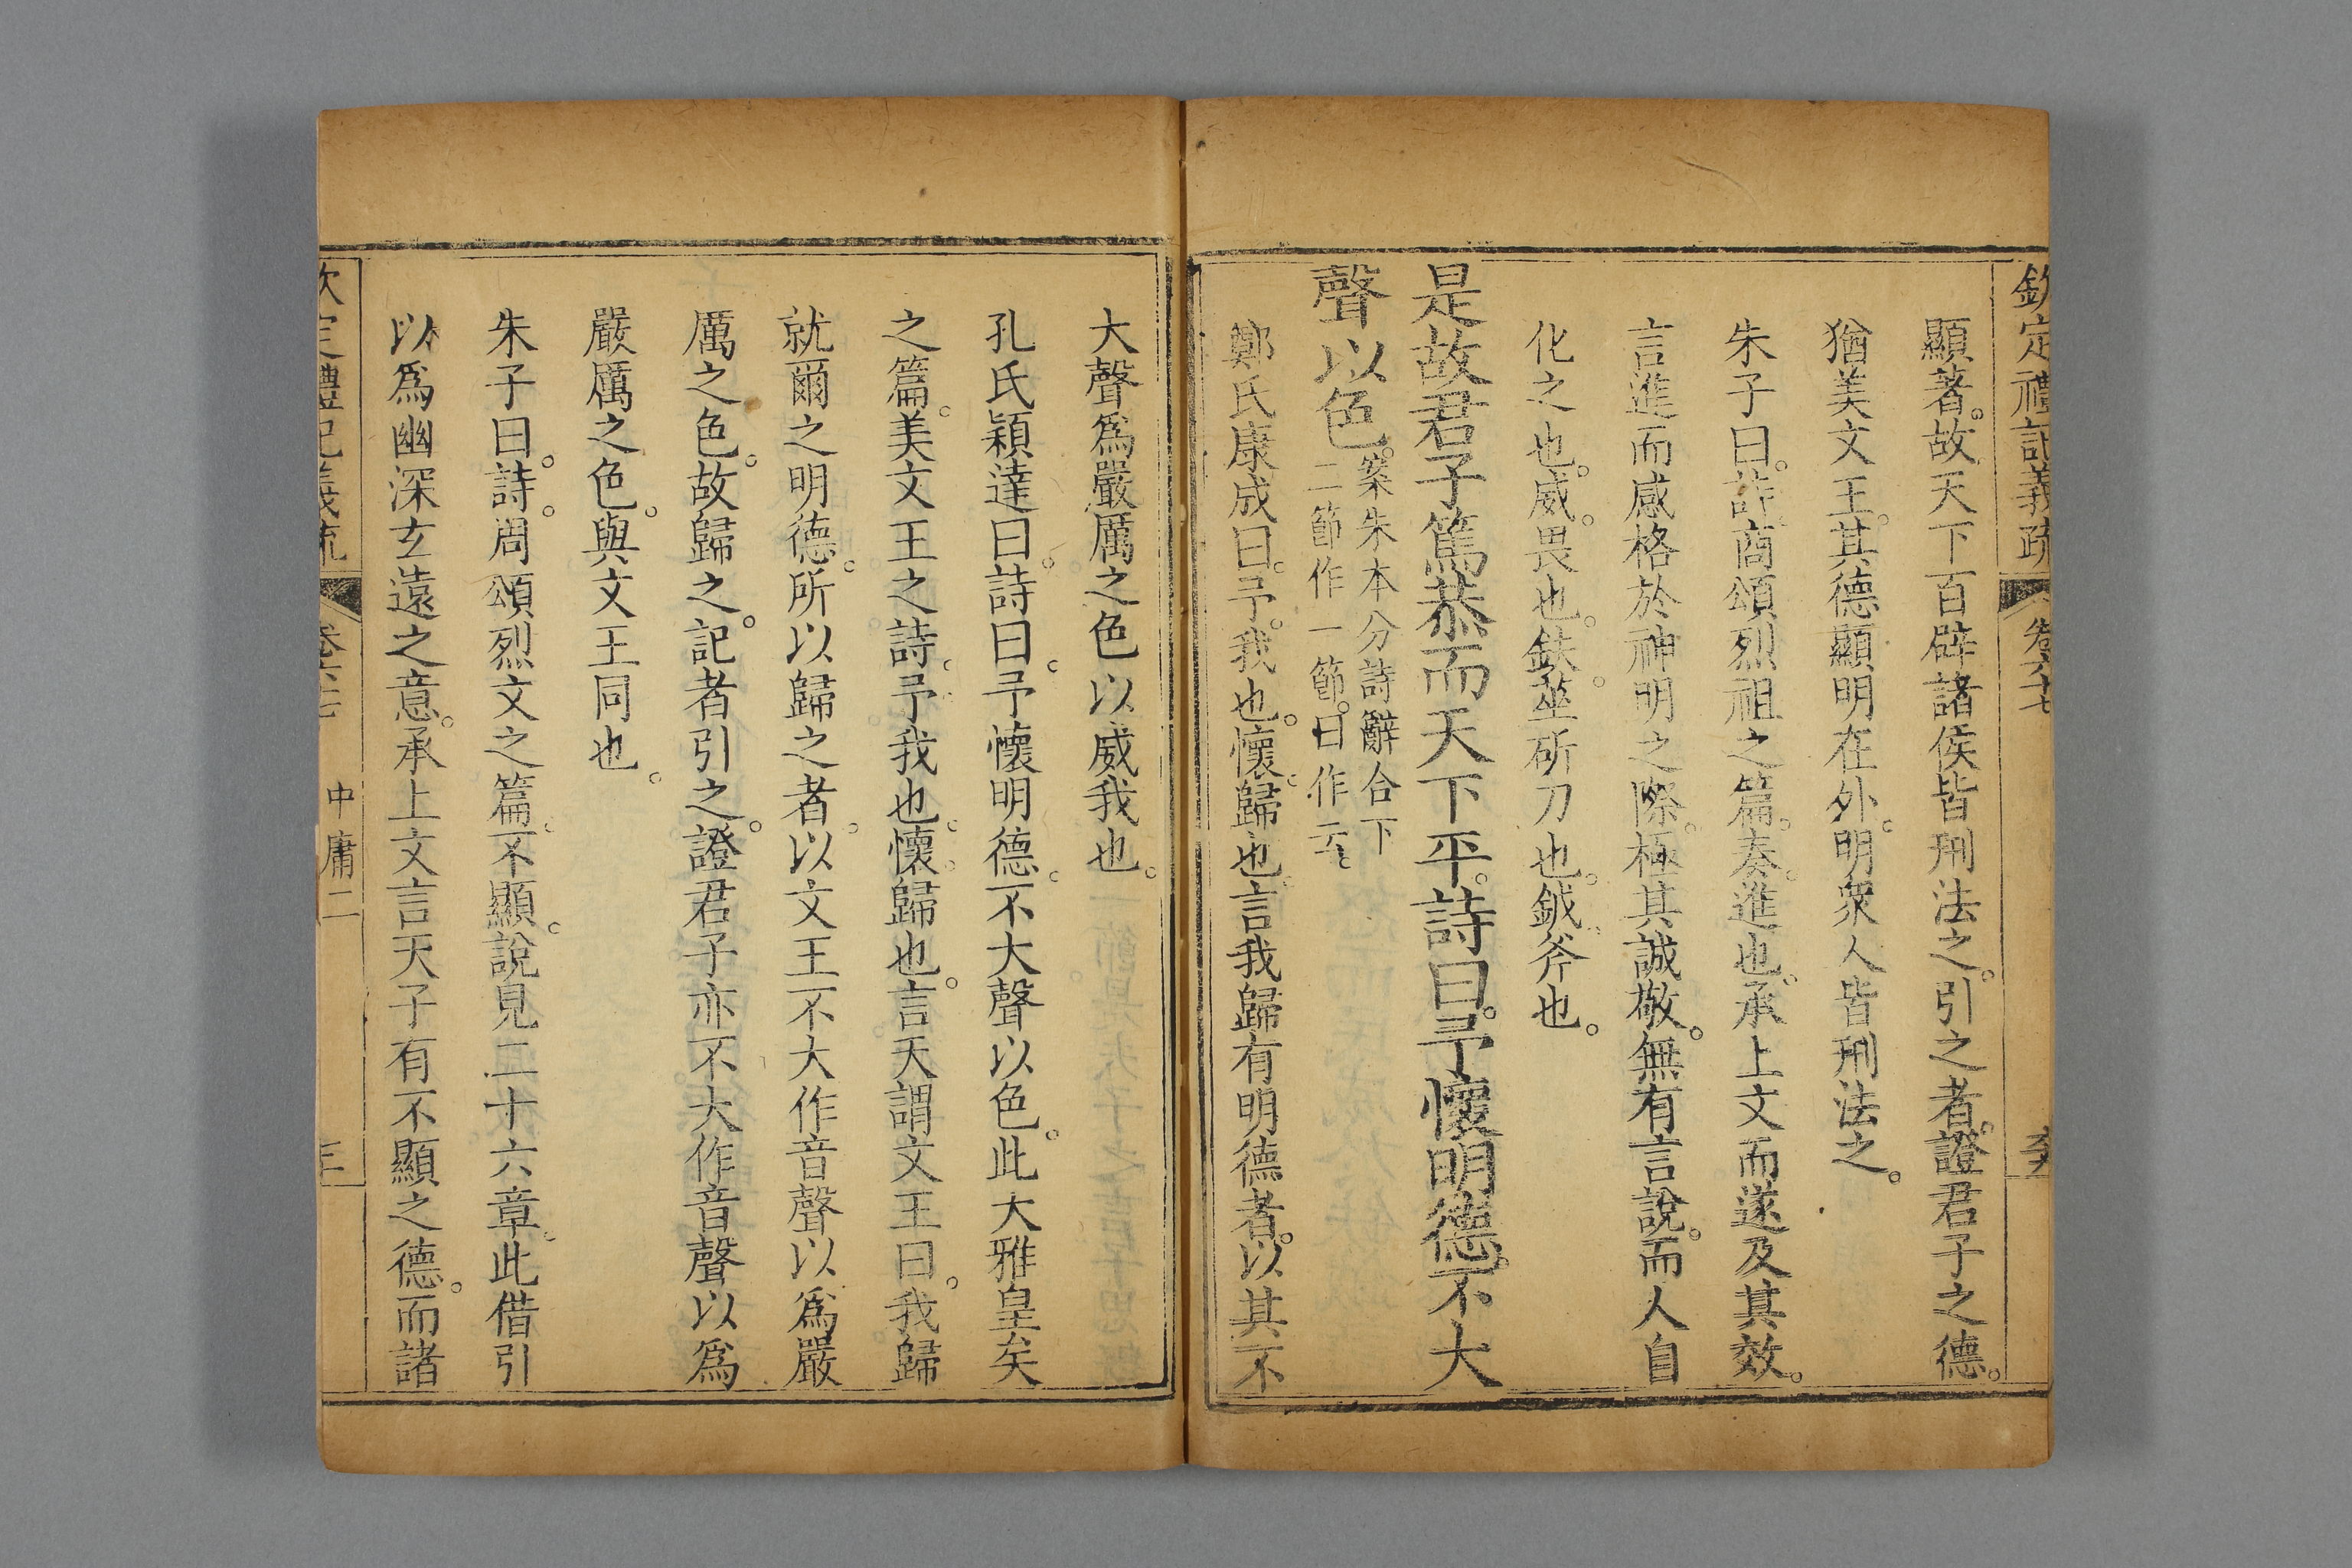 欽定禮記義疏 卷六十七
顯著。故天下百辟諸侯皆刑法之。引之者。證君子之德。
猶美文王。其德顯明在外。明衆人皆刑法之。
朱子曰。詩商頌烈祖之篇。奏。進也。承上文而遂及其效。
言進而感格於神明之際。極其誠敬。無有言說。而人自
化之也。威。畏也。鈇。莝斫刀也。鉞。斧也。
是故君子篤恭而天下平。詩曰。予懷明德。不大
聲以色。
案朱本分詩辭合下
二節作一節。曰作云。
鄭氏康成曰。予。我也。懷。歸也。言我歸有明德者。以其不
大聲爲嚴厲之色以威我也。
孔氏穎達曰。詩曰。予懷明德。不大聲以色。此大雅皇矣
之篇。美文王之詩。予。我也。懷。歸也。言天謂文王曰。我歸
就爾之明德。所以歸之者。以文王不大作音聲以爲嚴
厲之色。故歸之。記者引之。證君子亦不大作音聲以爲
嚴厲之色。與文王同也。
朱子曰。詩。周頌烈文之篇。不顯。說見二十六章。此借引
以爲幽深玄遠之意。承上文言天子有不顯之德。而諸
欽定禮記義疏 卷六十七 中庸二